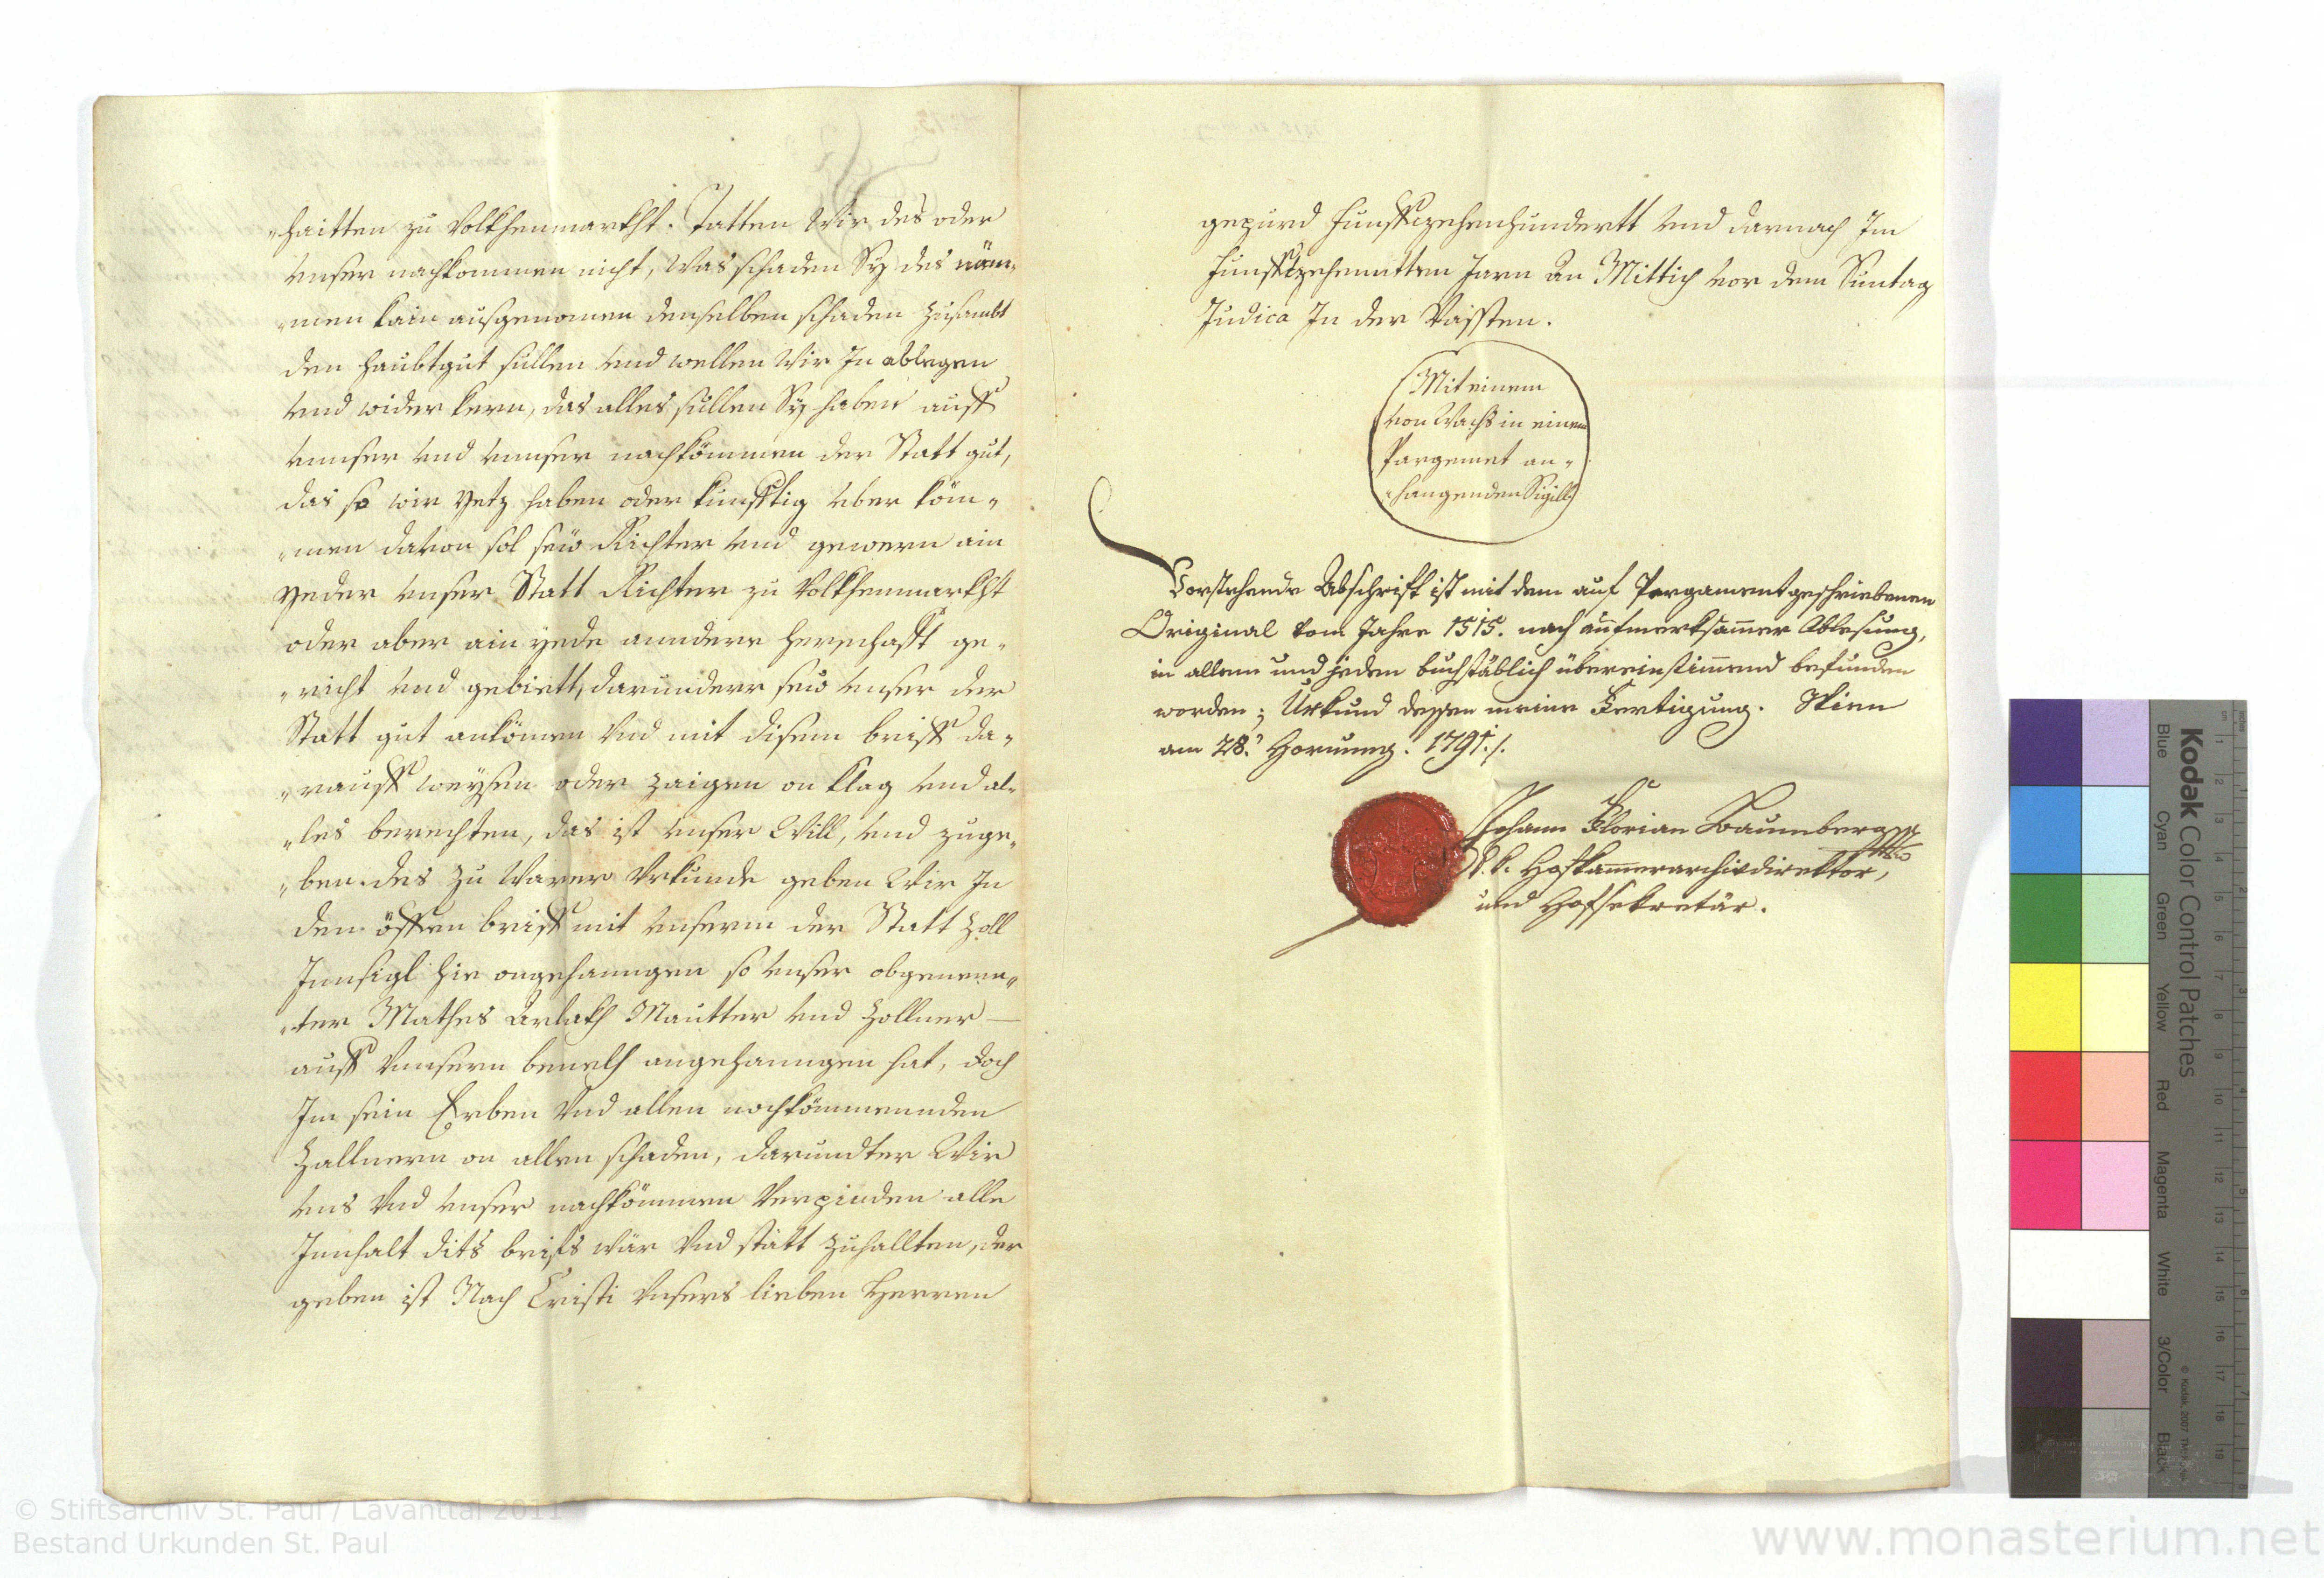 „haitten zu Volkhenmarkht. Tatten Wir des oder
vnser nachkommen nicht, Was schaden Sy des näm„
„men kain ausgenomen denselben schaden zusambt
den haubtgut sullen vnd wellen Wir In ablegen
vnd wider kern, das alles sullen Sy haben auff
vnnser vnd vnnser nachkömmen der Statt gut,
das so wir yetz haben oder kunfftig vber köm„
„men davon sol seïo Richter vnd gewern ain
yeder vnser Statt Richter zu Volkhenmarkht
oder aber ain yede anndere herschafft ge„
„richt vnd gebiett, darunder seïo vnser der
Statt gut ankömen Vnd mit disem brieff da„
„rauff weysen oder zaigen on klag vnd al„
„les berechten, das ist vnser Will, vnd zuge„
„ben. des zu Warer Vrkunde geben Wir In
den offen brieff mit vnserm der Statt Zoll
Innsigl hie angehanngen so vnser obgenenn„
„ter Mathes Arlakh Mautter vnd Zollner
auff Vnnsern beuelh angehanngen hat, doch
Im sein Erben Vnd allen nachkömmennden
Zallnern on allen schaden, darundter Wir
vns Vnd vnser nachkömmen Verpinden alle
Innhalt dits briefs wär Vnd stätt zuhallten, der
geben ist Nach Cristi Vnsers lieben Herren
gepurd funffczehenhundertt vnd darnach Im
funfftzehenntten Jarn An Mittich vor dem Suntag
Judica In der Vassten.
Mit einem
von Wachs in einem
Pargemet an„
„hangenden Sigill
Vorstehende Abschrift ist mit dem auf Pergament geschriebenen
Original vom Jahre 1515. nach aufmerksammer Ablesung,
in allem und jedem buchstäblich übereinstimmend befunden
worden; Urkund dessen meine Fertigung. Wien
am 28.ᵗ Hornung. 1791./.
Johann Florian Baumberg
k. k. Hofkammerarchivdirektor,
und Hofsekretär.
© Stiftsarchiv St. Paul / Lavanttal 2011
Bestand Urkunden St. Paul
www.monasterium.net
Kodak Color Control Patches
Blue
Cyan
Green
Yellow
Red
Magenta
White
3/Color
Black
© Kodak, 2007